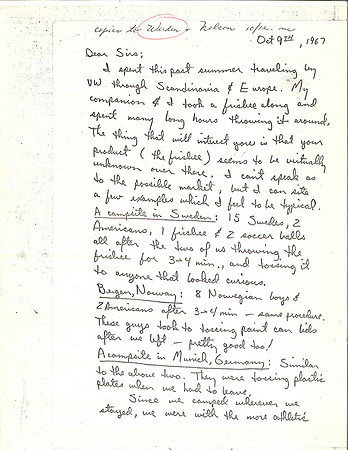 copies to Werden + Nelson 10/12. mc
Oct 9TH, 1967
Dear Sirs;
I spent this past summer traveling by
VW through Scandinavia & Europe. My
companion & I took a frisbee along and
spent many long hours throwing it around.
The thing that will intrest you is that your
product (the frisbee) seems to be virtually
unknown over there. I can't speak as
to the possible market, but I can site
a few examples which I feel to be typical.
A campsite in Sweden: 15 Swedes, 2
Americans, 1 frisbee & 2 soccer balls
all after the two of us throwing the
frisbee for 3→4 min., and tossing it
to anyone that looked curious.
Bergen, Norway: 8 Norwegian boys &
2 Americans after 3→4 min — same procedure.
These guys took to tossing paint can lids
after we left — pretty good too!
A campsite in Munich, Germany: Similar
to the above two. They were tossing plastic
plates when we had to leave.
Since we camped wherever we
stayed, we were with the more athletic